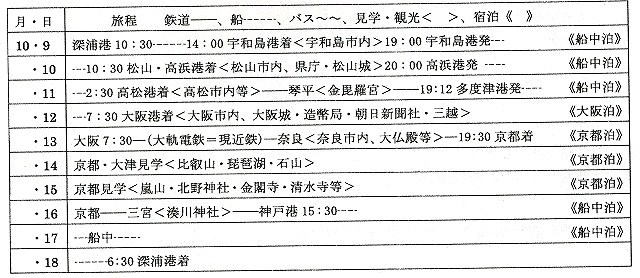 月・日 旅程 鉄道――、船------、バス～～、見学・観光＜ ＞、宿泊《 》
10・9 深浦港10：30------14：00宇和島港着＜宇和島市内＞19：00宇和島港発--- 《船中泊》
・10 ---10：30松山・高浜港着＜松山市内、県庁・松山城＞20：00高浜港発---- 《船中泊》
・11 ---2：30高松港着＜高松市内等＞――琴平＜金毘羅宮＞――19：12多度津港発---- 《船中泊》
・12 ---7：30大阪港着＜大阪市内、大阪城・造幣局・朝日新聞社・三越＞ 《大阪泊》
・13 大阪7：30―(大軌電鉄＝現近鉄)―奈良＜奈良市内、大仏殿等＞―19：30京都着 《京都泊》
・14 京都・大津見学＜比叡山・琵琶湖・石山＞ 《京都泊》
・15 京都見学＜嵐山・北野神社・金閣寺・清水寺等＞ 《京都泊》
・16 京都――三宮＜湊川神社＞――神戸港15：30---- 《船中泊》
・17 ---船中----- 《船中泊》
・18 ------6：30深浦港着